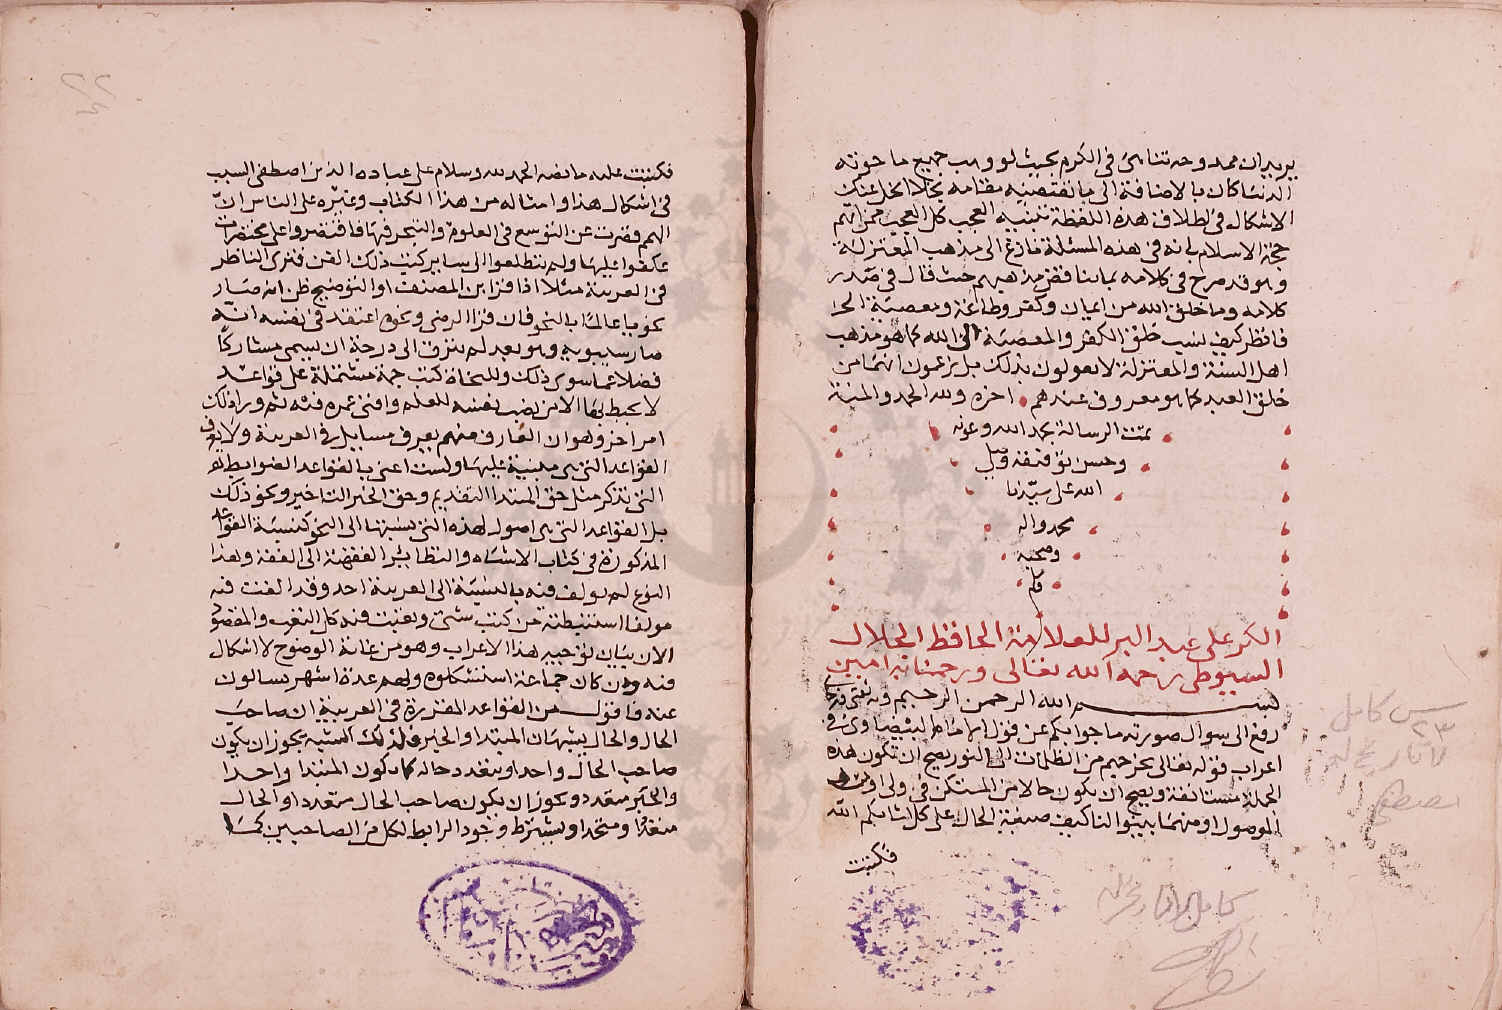 يريد ان ممدوحه تناهى في الكرم بحيث لو وهب جميع ما حوته
الدنيا كان بالاضافة الى ما تقتضيه مقامه بخلا انحل عنك
الاشكال في اطلاق هذه اللفظة تنبيه العجب كل العجب ممن اتهم
حجة الاسلام بانه في هذه المسئلة نازع الى مذهب المعتزلة
وهو قد صرح في كلامه بما يناقض مذهبهم حيث قال في صدر
كلامه وما خلق الله من ايمان وكفر وطاعة ومعصية الخ
فانظر كيف نسب خلق الكفر والمعصية الى الله كما هو مذهب
اهل السنة والمعتزلة لا يقولون بذلك بل يزعمون انهما من
خلق العبد كما هو معروف عندهم اخره ولله الحمد والمنة
تمت الرسالة بحمد الله وعونه
وحسن توفيقه وصلى
الله على سيدنا
محمد واله
وصحبه
وسلم
الكر على عبد البر للعلامة الحافظ الجلال
السيوطي رحمه الله تعالى ورحمنا به امين
بسم الله الرحمن الرحيم وبه ثقتي
رفع الى سؤال صورته ما جوابكم عن قول امامنا البيضاوي في
اعراب قوله تعالى يخرجهم من الظلمات الى النور يصح ان تكون هذه
الجملة مستانفة ويصح ان يكون حالا من المستكن في ولي او من
الموصول او منهما بينوا لنا كيفية صيغة الحال على كل اثابكم الله
فكتبت
فكتبت عليه ما نصه الحمد لله وسلام على عباده الذين اصطفى السبب
في اشكال هذا وامثاله من هذا الكتاب وغيره على الناس ان
الهمم قصرت عن التوسع في العلوم والتبحر فيها فاقتصروا على مختصرات
عكفوا عليها ولم يتطلعوا الى ساير كتب ذلك الفن فترى الناظر
في العربية مثلا اذا قرا ابن المصنف او التوضيح ظن انه صار
نحويا عالما بالنحو فان قرا الرضي ونحوه اعتقد في نفسه انه
صار سيبويه وهو بعد لم يترق الى درجة ان يسمى مشاركا
فضلا عما سوى ذلك وللنحاة كتب جمة مشتملة على قواعد
لا يحيط بها الا من نصب نفسه للعلم وافنى عمره فيه ثم وراء ذلك
امر اخر وهو ان العارف منهم يعرف مسايل في العربية ولا يعرف
القواعد التي هي مبنية عليها ولست اعني بالقواعد الضوابط
التي تذكر مثل حق المبتدا التقديم وحق الخبر التاخير ونحو ذلك
بل القواعد التي هي اصول لهذه التي نسبتها الى النحو كنسبة القواعد
المذكورة في كتاب الاشباه والنظائر الفقهية الى الفقه وهذا
النوع لم يولف فيه بالنسبة الى العربية احد وقد الفت فيه
مولفا استنبطته من كتب شتى وتعبت فيه كل التعب والمقصود
الان بيان توجيه هذا الاعراب وهو من غاية الوضوح لا اشكال
فيه وان كان جماعة استشكلوه ولهم عدة اشهر يسالون
عنه فاقول من القواعد المقررة في العربية ان صاحب
الحال والحال يشبهان المبتدا والخبر فلذلك الشبه يجوز ان يكون
صاحب الحال واحدا وبتعدد حاله كما يكون المبتدا واحدا
والخبر متعدد ويجوز ان يكون صاحب الحال متعددا والحال
متعددا ومتحدا ويشترط وجود الرابط لكل من الصاحبين كما